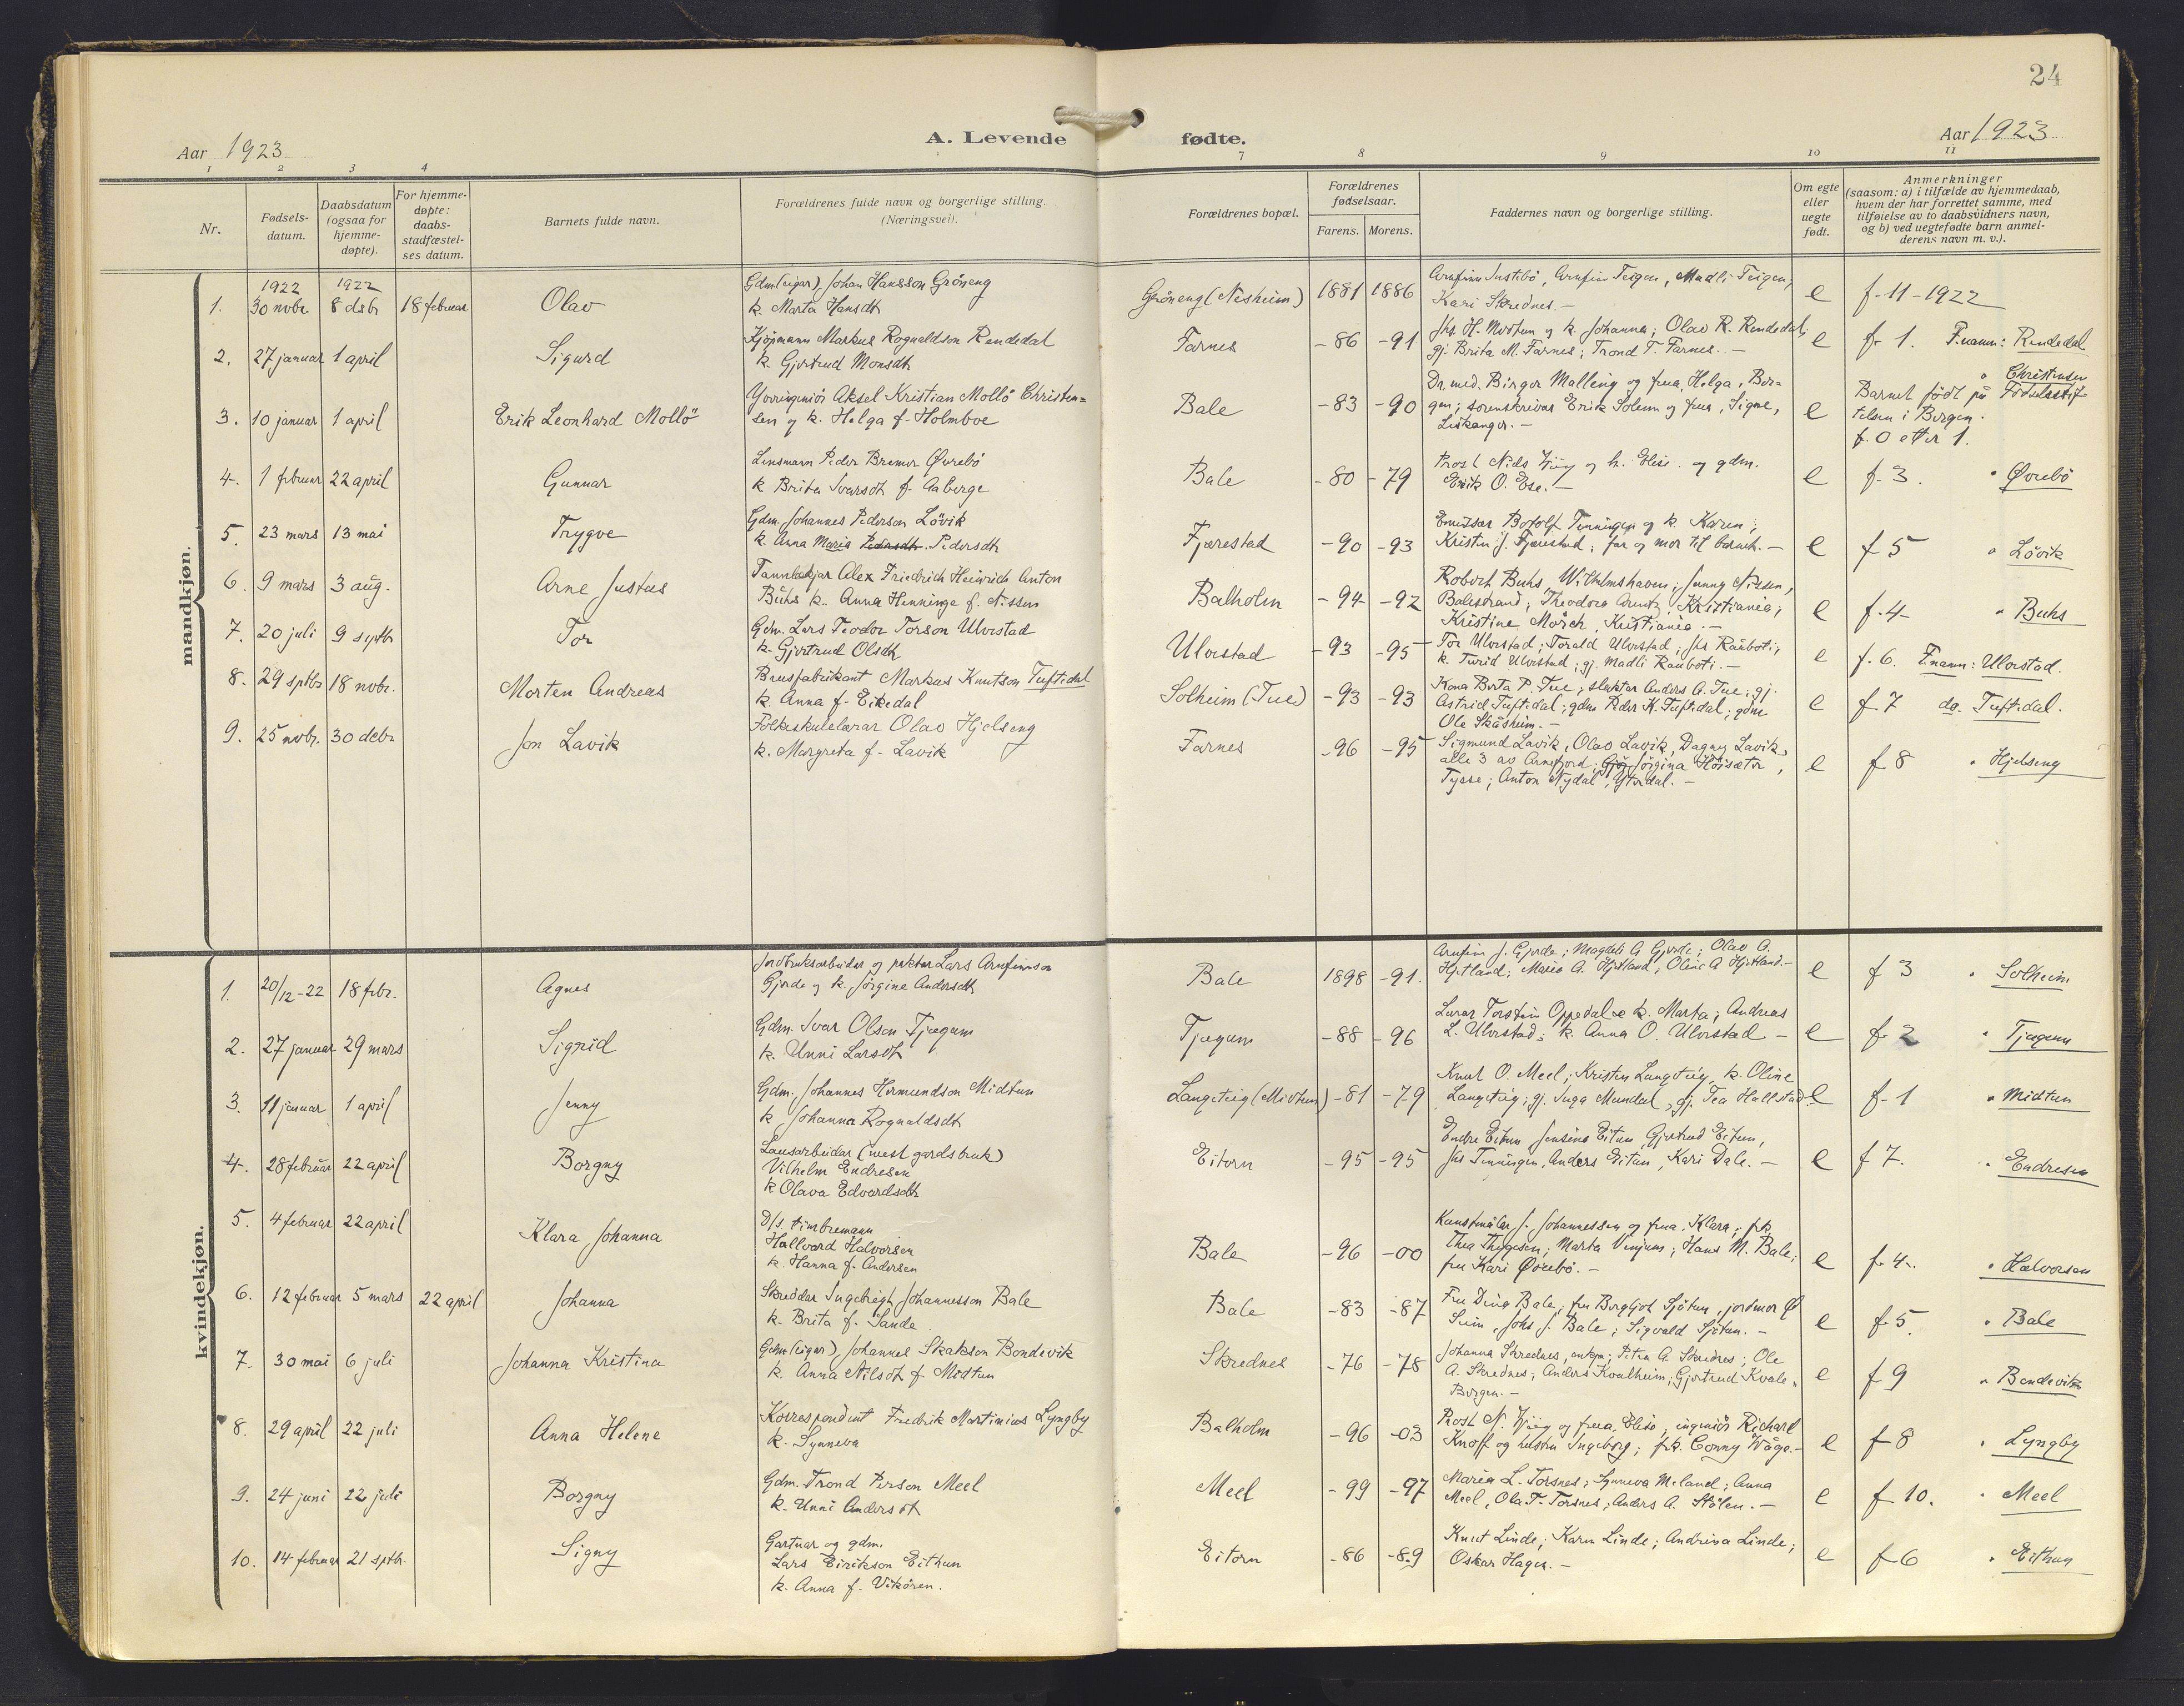 24
Aar 1923
A. Levende fødte.
Aar 1923
1 2 3 4 7 8 9 10 11
Nr.
Fødsels-
datum.
Daabsdatum
(ogsaa for
hjemme-
døpte).
For hjemme-
døpte:
daabs-
stadfæstel-
ses datum.
Barnets fulde navn.
Forældrenes fulde navn og borgerlige stilling.
(Næringsvei).
Forældrenes bopæl.
Forældrenes
fødselsaar.
Farens. Morens.
Faddernes navn og borgerlige stilling.
Om egte
eller
uegte
født.
Anmerkninger
(saasom: a) i tilfælde av hjemmedaab,
hvem der har forrettet samme, med
tilføielse av to daabsvidners navn,
og b) ved uegtefødte barn anmel-
derens navn m. v.).
mandkjøn.
1. 1922 30 novbr. 1922 8 debr 18 februar Olav
Gdm (eigar) Johan Hansson Gröneng
k. Marta Hansdtr
Gröneng (Nesheim) 1881 1886
Arnfinn Tustibö, Arnfinn Teigen, Madli Teigen,
Kari Skrednes.-
e f- 11-1922
2. 27 januar 1 april Sigurd
Kjöpmann Markus Rognaldson Rendedal
k. Gjertrud Monsdtr
Farnes -86 -91
Jhs. H. Midtun og k. Johanna; Olav R. Rendedal;
gj. Brita M. Farnes; Trond T. Farnes. -
e f- 1. F.namn: Rendedal
3. 10 januar 1 april Erik Leonhard Mollö
Yveringeniör Aksel Kristian Mollö Christen=
sen og k. Helga f. Holmboe
Bale -83 -90
Dr. med. Birger Malling og frua, Helga, Ber=
gen; sorenskrivar Erik Solem og frua, Signe,
Leikanger. -
e
" Christensen
Barnet född på Födselsstif
telsen i Bergen.
f. 0 etter 1.
4. 1 februar 22 april Gunnar
Lensmann Peder Bremer Øvrebö
k Brita Ivarsdtr f. Aaberge
Bale -80 -79
Prost Niels Wiig og h. Elise og gdm.
Eirik O. Ese. -
e f- 3. " Øvrebö
5. 23 mars 13 mai Trygve
Gdm. Johannes Pederson Lövik
k. Anna Maria Pedersdtr. Pedersdtr
Fjærestad -90 -93
Emissær Botolf Tenningen og k. Karen;
Kristen J. Fjærestad; far og mor til barnet. -
e f 5 " Lövik
6. 9 mars 3 aug. Arne Justus
Tannlækjar Alex Friedrich Heinrich Anton
Buhs k. Anna Henninge f. Nissen
Balholm -94 -92
Robert Buhs, Wilhelmshaven; Jenny Nissen,
Balestrand; Theodora Arentz, Kristiania;
Kristine Mörch, Kristiania. -
e f-4- " Buhs
7. 20 juli 9 septbr Tor
Gdm. Lars Teodor Torson Ulvestad
k. Gjertrud Olsdtr
Ulvestad -93 -95
Tor Ulvestad; Torald Ulvestad; Jhs Rauboti;
k. Turid Ulvestad; gj. Madli Rauboti. -
e f. 6. F.namn: Ulvestad.
8. 29 sptbr 18 novbr. Morten Andreas
Brusfabrikant Markus Knutson Tuftedal
k. Anna f. Eikedal
Solheim (Tue) -93 -93
Kona Berta P. Tue; slaktar Anders A. Tue; gj.
Astrid Tuftedal; gdm Peder K. Tuftedal; gdm
Ole Skåsheim. -
e f 7 do. Tuftedal.
9. 25 novbr. 30 debr Jon Lavik
Folkeskulelærar Olav Hjelseng
k. Margreta f. Lavik
Farnes -96 -95
Sigmund Lavik, Olav Lavik, Dagny Lavik,
alle 3 av Arnefjord; Jörgina Höisæter,
Tysse; Anton Nydal, Ytredal. -
e f 8 " Hjelseng
kvindekjøn.
1. 20/12-22 18 febr. Agnes
Jordbruksarbeidar og paktar Lars Arnfinnson
Gjerde og k. Jörgine Andersdtr
Bale 1898 -91.
Arnfinn J. Gjerde; Magdeli A Gjerde; Olav A.
Hjetland; Maria A. Hjetland; Oline A Hjetland. -
e f 3 " Solheim
2. 27 januar 29 mars Sigrid
Gdm. Ivar Olson Tjugum
k. Unni Larsdtr
Tjugum -88 -96
Lærar Torstein Oppedal og k. Marta; Andreas
L. Ulvestad; k. Anna O. Ulvestad -
e f- 2 " Tjugum
3. 11 januar 1 april Jenny
Gdm. Johannes Hermundson Midtun
k Johanna Rognaldsdtr
Langeteig (Midtun) -81 -79
Knut O. Meel; Kristen Langeteig, k. Oline
Langeteig; gj. Inga Mundal, gj. Tea Hallstad
e f- 1 " Midtun
4. 28 februar 22 april Borgny
Lausarbeidar (mest gardsbruk)
Vilhelm Endresen
k Olava Edvardsdtr
Eitorn -95 -95
Endre Eitun Jensina Eitun, Gjertrud Eitun,
Jhs Tenningen, Anders Eitun, Kari Dale. -
e f 7. " Endresen
5. 4 februar 22 april Klara Johanna
D/s. timbremann
Hallvard Halvorsen
k. Hanna f. Andersen
Bale -96 -00
Kunstmålar J. Johannessen og frua, Klara; frk
Thea Thygesen; Marta Venjum; Hans M. Bale;
fru Kari Øvrebö. -
e f- 4-. " Halvorsen
6. 12 februar 5 mars 22 april Johanna
Skreddar Ingebrigt Johannesson Bale
k. Brita f. Sande
Bale -83 -87
Fru Dina Bale; fru Bergljot Sjötun, jordmor Ø
Suim, Johs J. Bale; Sigvald Sjötun. -
e f- 5. " Bale
7. 30 mai 6 juli Johanna Kristina
Gdm (eigar) Johannes Skakson Bondevik
k. Anna Nilsdtr f. Midtun
Skrednes -76 -78
Johanna Skrednes, enkja; Petra A. Skrednes; Ole
A. Skrednes; Anders Kvalheim; Gjertrud Kvale,
Bergen. -
e f 9 " Bondevik
8. 29 april 22 juli Anna Helene
Korrespondent Fredrik Martinius Lyngby
k. Synneva
Balholm -96 -03
Prost N. Wiig og frua, Elise; ingeniör Richard
Knoff og hustru Ingeborg; frk. Conny Wåge. -
e f 8 " Lyngby
9. 24 juni 22 juli Borgny
Gdm. Trond Person Meel
k. Unni Andersdt
Meel -99 -97
Maria L. Torsnes; Synneva Meland; Anna
Meel, Ola T. Torsnes; Anders A. Stölen. -
e f 10. " Meel
10. 14 februar 21 sptbr. Signy
Gartnar og gdm.
Lars Eirikson Eithun
k. Anna f. Vikören.
Eitorn -86 -89
Knut Linde; Karen Linde; Andrina Linde;
Oskar Hagen. -
e f 6 " Eithun